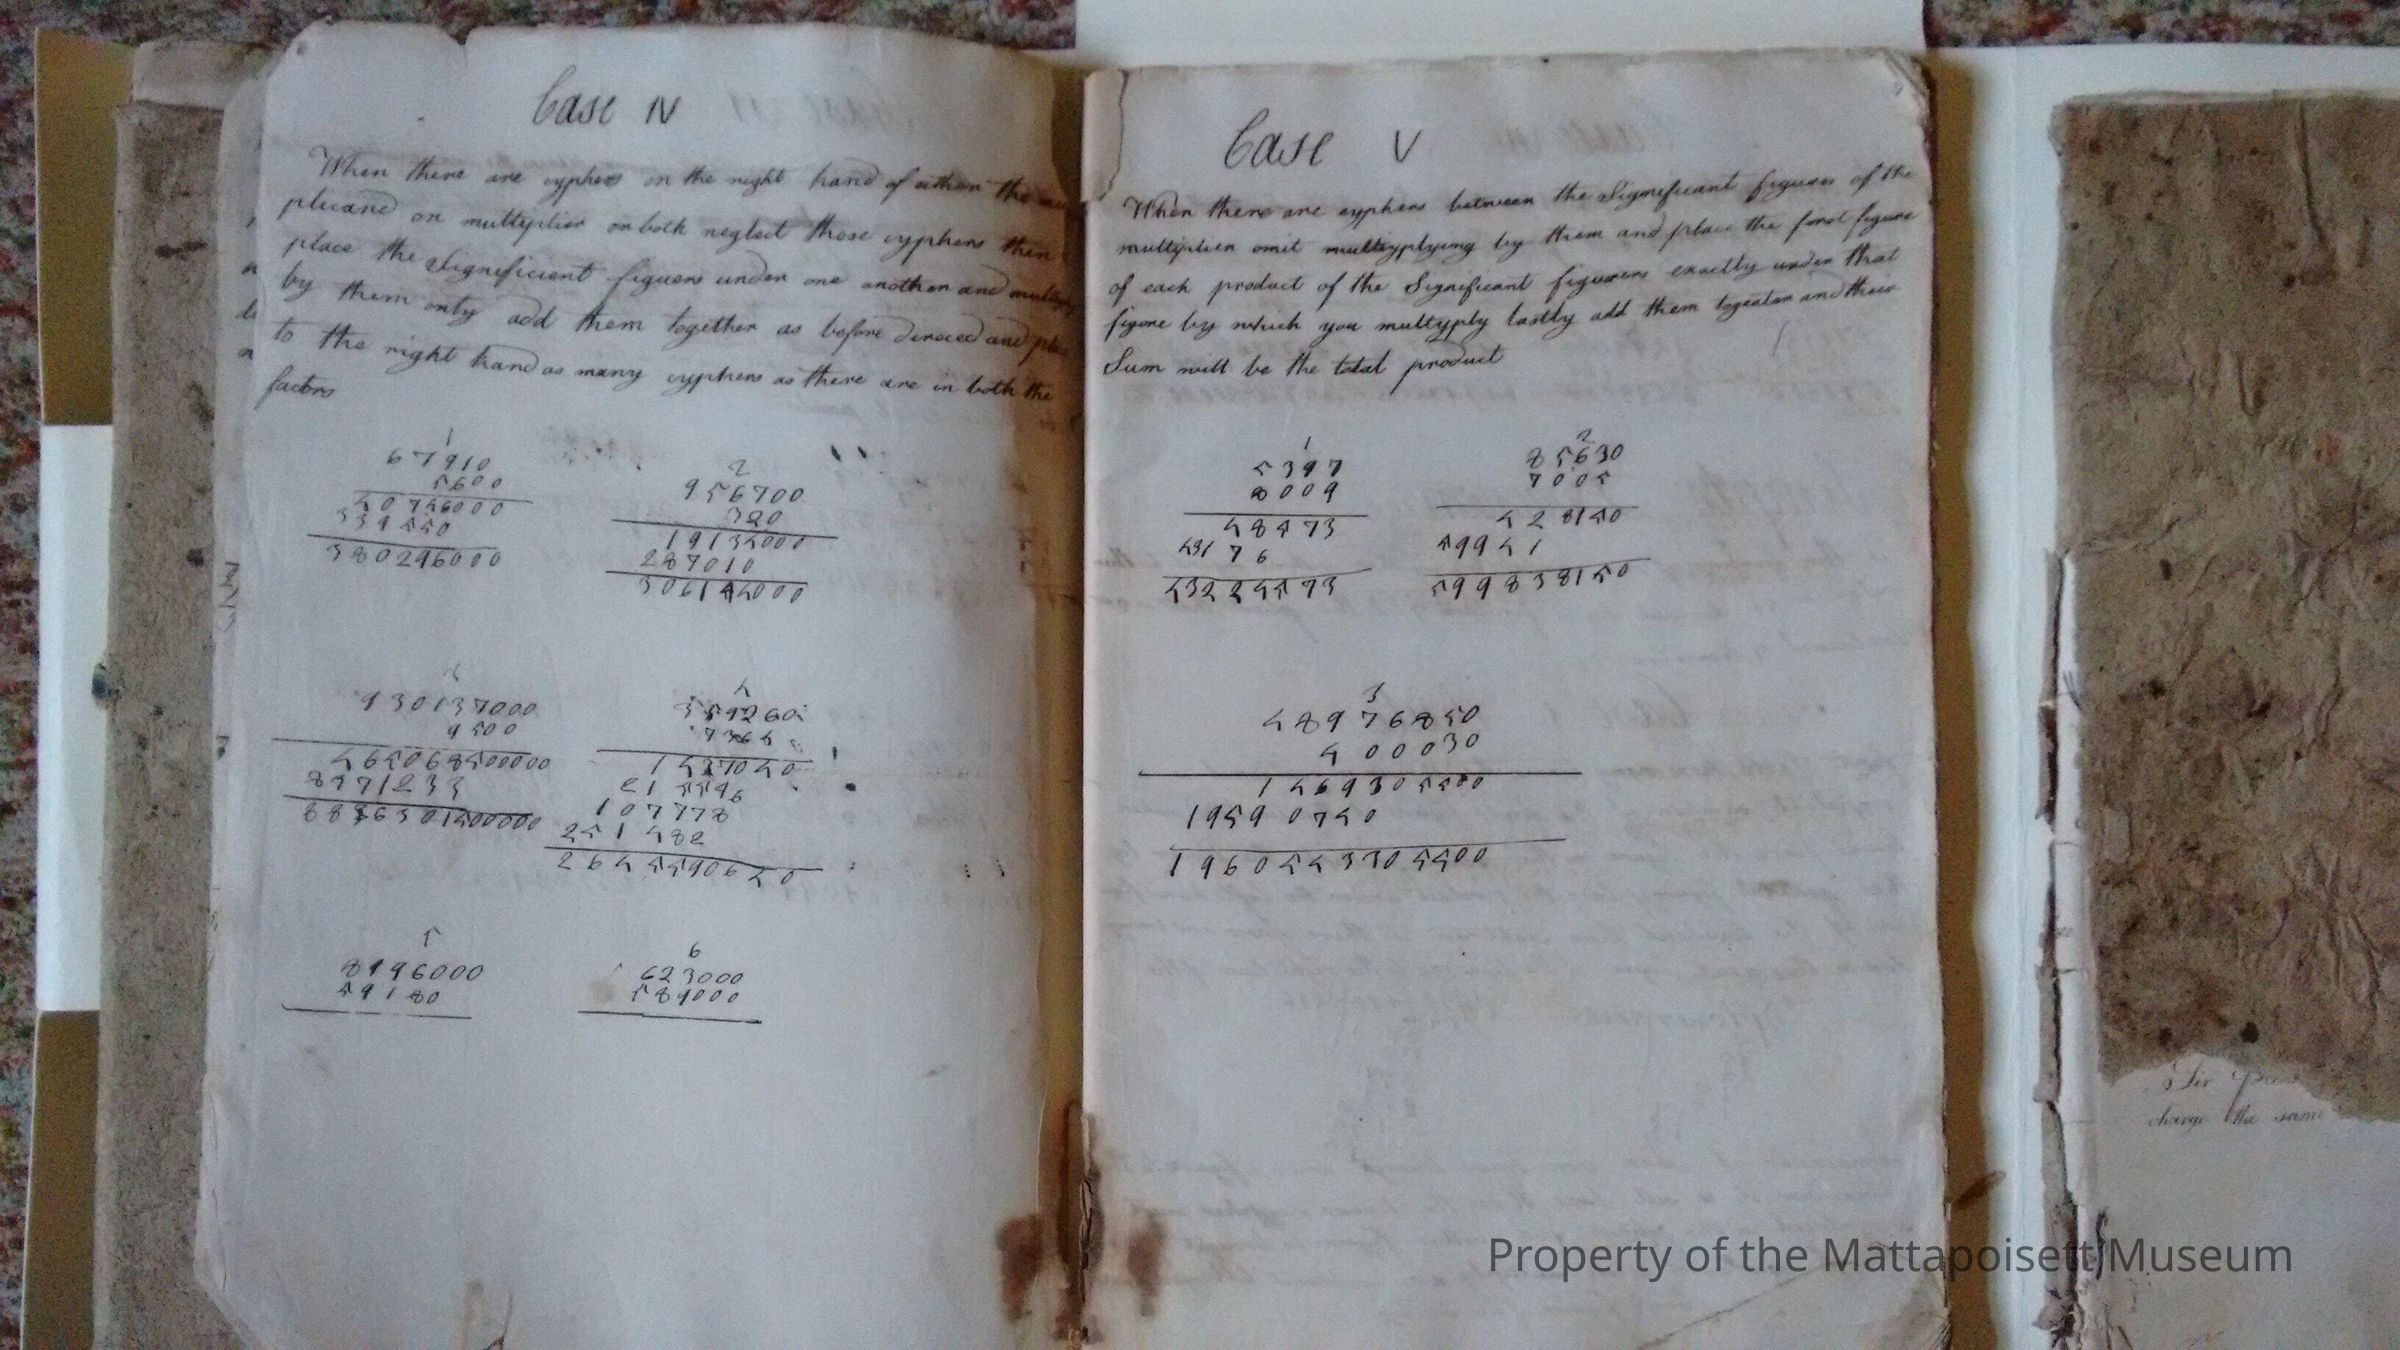 Case IV
When there are cyphers on the right hand of either the mu
plicand or multiplier or both neglect those cyphers then
place the Significient figuers under one another and multiply
by them only add them together as before direced and place
to the right hand as many cyphers as there are in both the
factors
1
67910
5600
40746000
339550
380296000
2
956700
320
19134000
287010
306144000
3
930137000
9500
465068500000
8371233
8836301500000
4
359260
7364
1437040
215556
107778
251482
2645590640
5
8196000
59180
6
623000
589000
Case V
When there are cyphers between the Significant figures of the
multiplier omit multipplying by them and place the first figure
of each product of the Significant figuers exactly under that
figure by which you multyply lastly add them togeater and their
Sum will be the total product
1
5397
8009
48573
43176
43224573
2
85630
7005
428150
59941
599838150
3
48976850
400030
1469305500
19590740
1960543305500
Sir
charge the same
Property of the Mattapoisett Museum